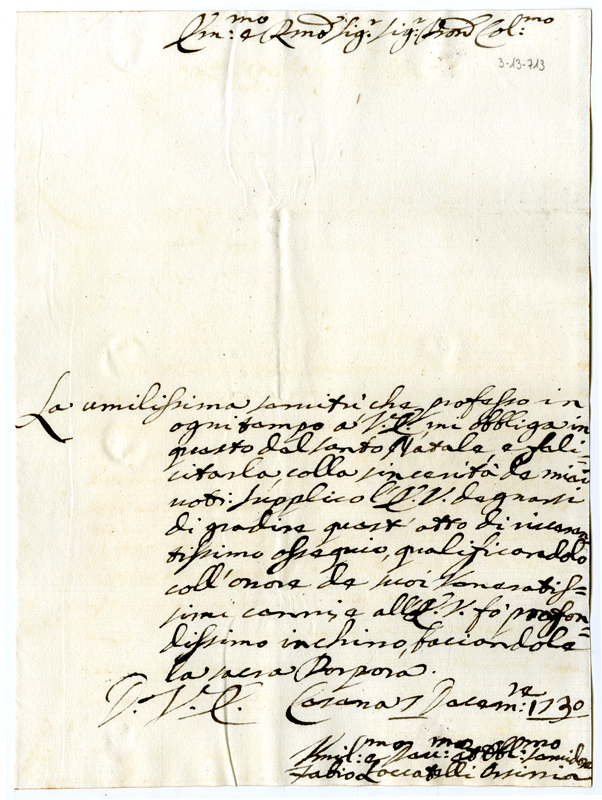 Em:mo e Rmo Sig.r Sig.r Pron Col:mo
3-13-713
La umilissima servitù che professo in
ogni tempo a V.E. mi obbliga in
questo del Santo Natale, e feli=
citarla colla sincerità de miei
voti: supplico l'E.V. degnarsi
di gradire quest'atto di riveren
tissimo ossequio, qualificandolo
coll'onore de suoi veneratis=
simi cenni; e all'E.V. fò profon=
dissimo inchino, faciendole
la sacra Porpora.
D. V. E. Cesena 7 Decem:re 1730
Umil:mo e Dev:mo et Obbl:mo Servidore
Fabio Loccatelli Orsinia